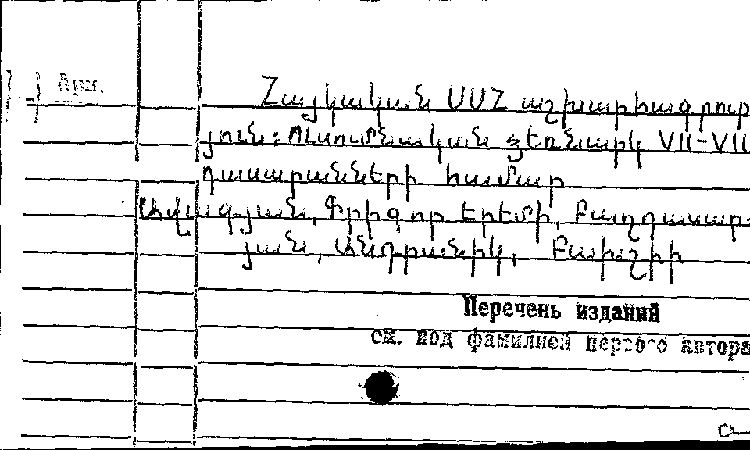 Арм.
Հայկական ՍՍՀ աշխարհագրութ
յուն: Ուսումնական ձեռնարկ VII-VII
դասարանների համար
Ավագյան, Գրիգոր Երեմի, Բաղդասար
յան, Անդրանիկ, Բախշիի
Перечень изданий
см. под фамилией первого автора